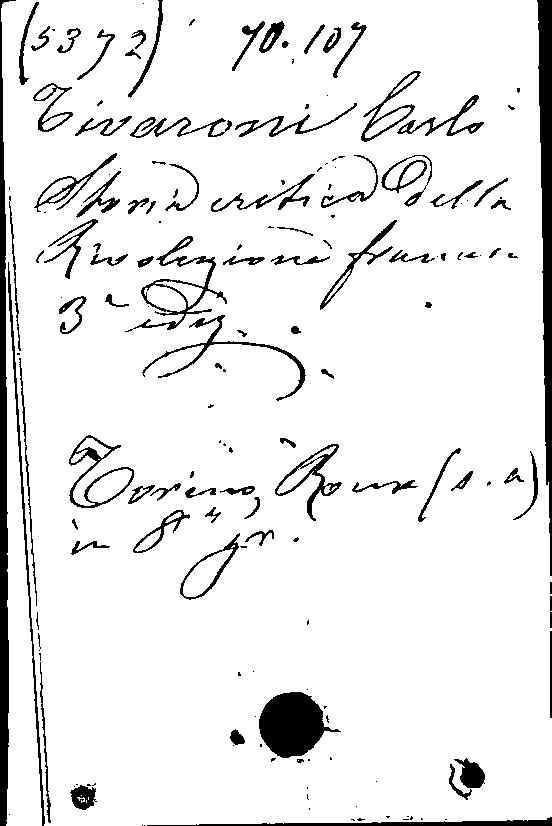 (5372) 70.107
Tivaroni Carlo
Storia critica della
Rivoluzione frances
3ª ediz.
Torino, Roux (s. a)
in 8º gr.